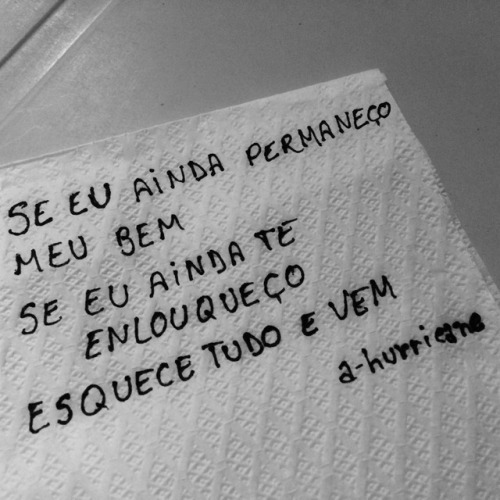 SE EU AINDA PERMANEÇO
MEU BEM
SE EU AINDA TE
ENLOUQUEÇO
ESQUECE TUDO E VEM
a-hurricane